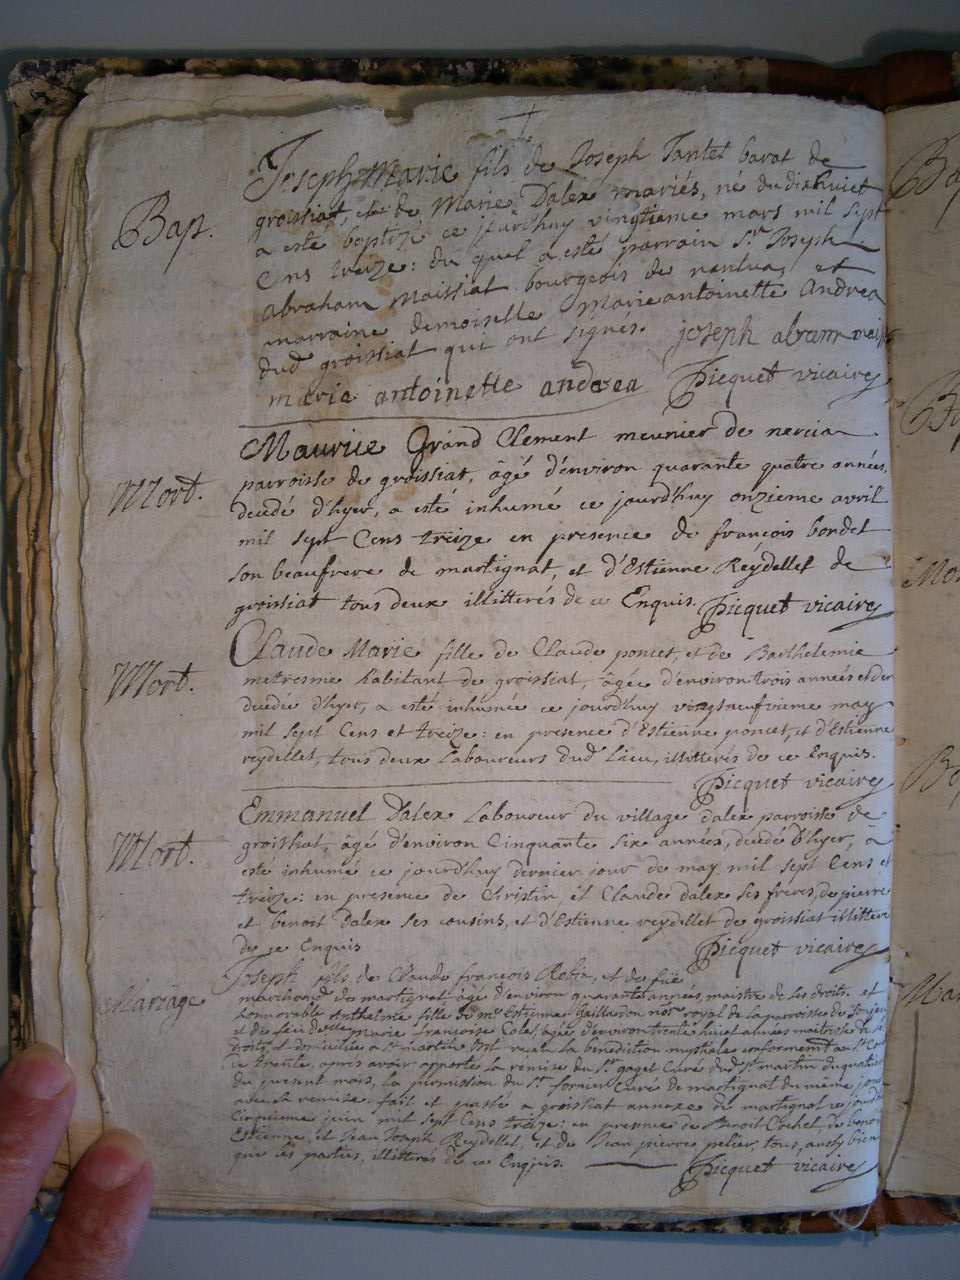 Bap.
Joseph Marie fils de Joseph Tantet barat de
groissiat, et de Marie Dalex mariés, né du dixhuict
a esté baptizé ce jourd'huy vingtieme mars mil sept
Cens treize: du quel a esté parrain Sr. Joseph
abraham Maissiat bourgeois de nantua, et
marraine demoiselle Marie antoinette Andrea
dud groissiat qui ont signés. joseph abram mei
marie antoinette andrea Picquet vicaire
Mort.
Maurice Grand Clement meunier de nercia
parroisse de groissiat, âgé d'environ quarante quatre années,
decedé d'hyer, a esté inhumé ce jourd'huy onzieme avril
mil sept Cens treize en presence de françois bondet
son beaufrere de martignat, et d'Estienne Reydellet de
groissiat tous deux illitterés de ce Enquis. Picquet vicaire
Mort.
Claude Marie fille de Claude poncet, et de Barthelemie
habitant de groissiat, âgée d'environ trois années et
decedée d'hyer, a esté inhumée ce jourd'huy vingtneufvieme may
mil sept Cens et treize: en presence d'Estienne poncet, et d'Estienne
reydellet, tous deux Laboureurs dud Lieu, illitterés de ce Enquis.
Picquet vicaire
Mort.
Emmanuel Dalex Laboureur du village dalex parroisse de
groissiat, âgé d'environ Cinquante six années, decedé d'hyer, a
esté inhumé ce jourd'huy dernier jour de may mil sept Cens et
treize: en presence de Christin, et Claude dalex ses freres, de pierre
et benoit Dalex ses cousins, et d'Estienne reydellet de groissiat illittere
de ce Enquis Picquet vicaire
Mariage
Joseph fils de Claude françois Robin, et de füe
marchand de martignat, âgé d'environ quarante années, maistre de ses droits. et
honnorable Anthelmie fille de me Estienne Gaillardon nore royal de la parroisse de
et de feu delle Marie françoise âgée d'environ trente années maitresse de ses
droits, et domiciliée a St martin ont reçeu la benediction nuptiale conformement au St Con
ce trente, apres avoir apporté la remise du Sr goget Curé dud St martin du quatrie
du present mois, la permission du Sr fornier Curé de martignat du même jour
avec la remise. fait et passé a groissiat annexe de martignat ce jourd'
Cinquieme juin mil sept Cens treize: en presence de Benoit Cochet, de
Estienne, et Jean Joseph Reydellet, et de Jean pierre pelier, tous, aussy bien
que les parties, illitterés de ce Enquis. Picquet vicaire